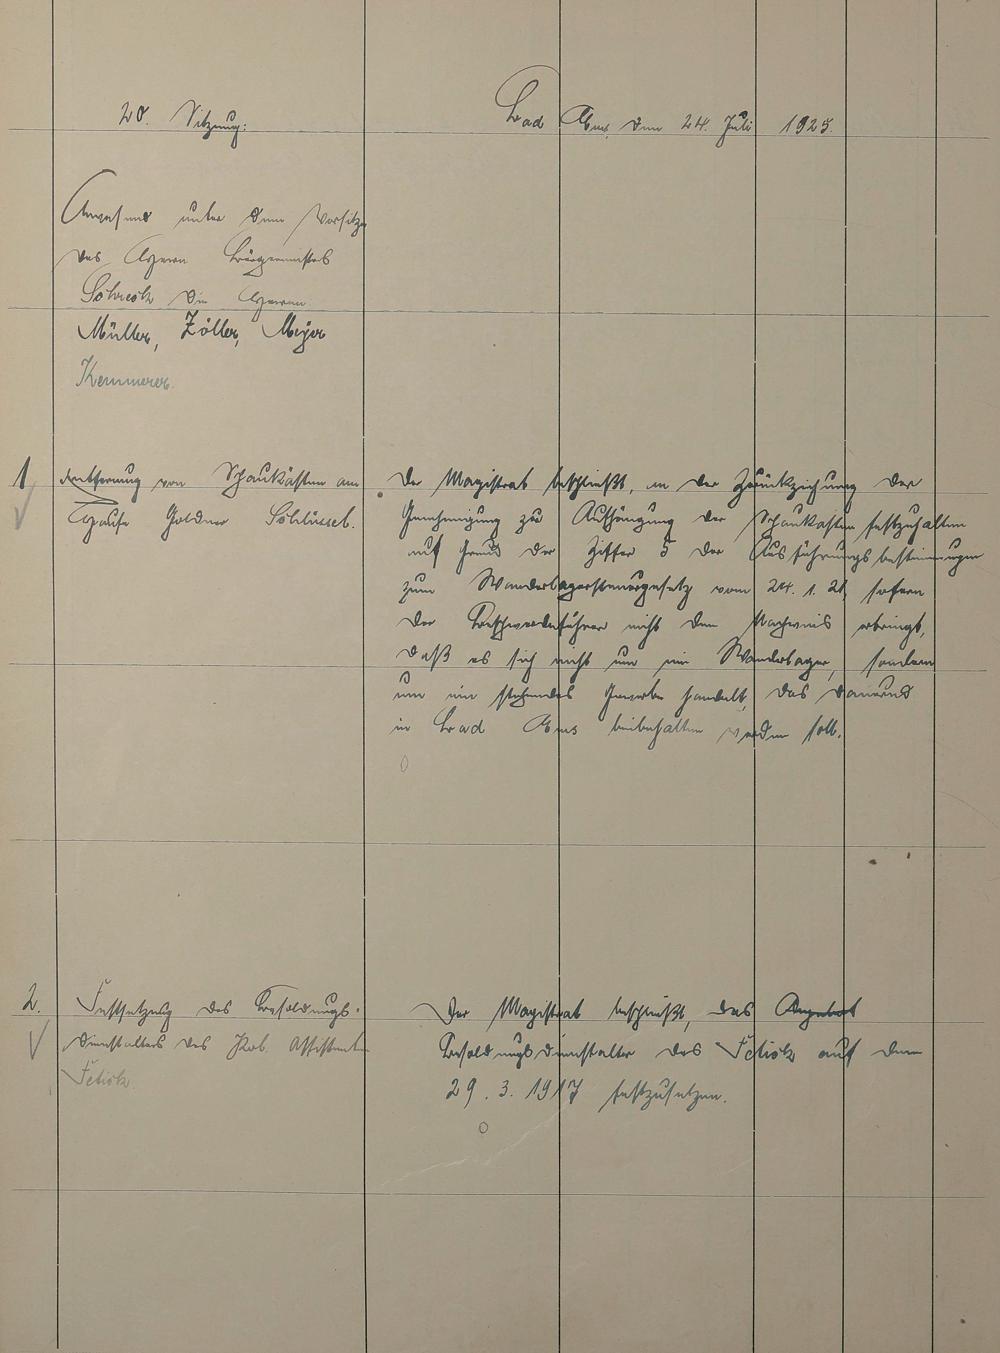 20. Sitzung:
Bad Ems, den 24. Juli 1925.
Anwesend unter dem Vorsitze
des Herrn Bürgermeisters
Schreck die Herren
Müller, Zöller, Meyer
Kemmerer.
1 Entfernung von Schaukästen am
Hause Goldner Schlüssel.
Der Magistrat beschließt, an der Zurückziehung der
Genehmigung zur Aufhängung der Schaukasten festzuhalten
auf Grund der Ziffer 5 der Ausführungsbestimmungen
zum Wanderlagersteuergesetz vom 24. 1. 21, sofern
der Beschwerdeführer nicht den Nachweis erbringt,
daß es sich nicht um ein Wanderlager, sondern
um ein stehendes Gewerbe handelt, das dauernd
in Bad Ems beibehalten werden soll.
2. Festsetzung des Besoldungs-
dienstalters des Assistenten
Fetick
Der Magistrat beschließt, das Angebot
Besoldungsdienstalter des Fetick auf den
29. 3. 1917 festzusetzen.